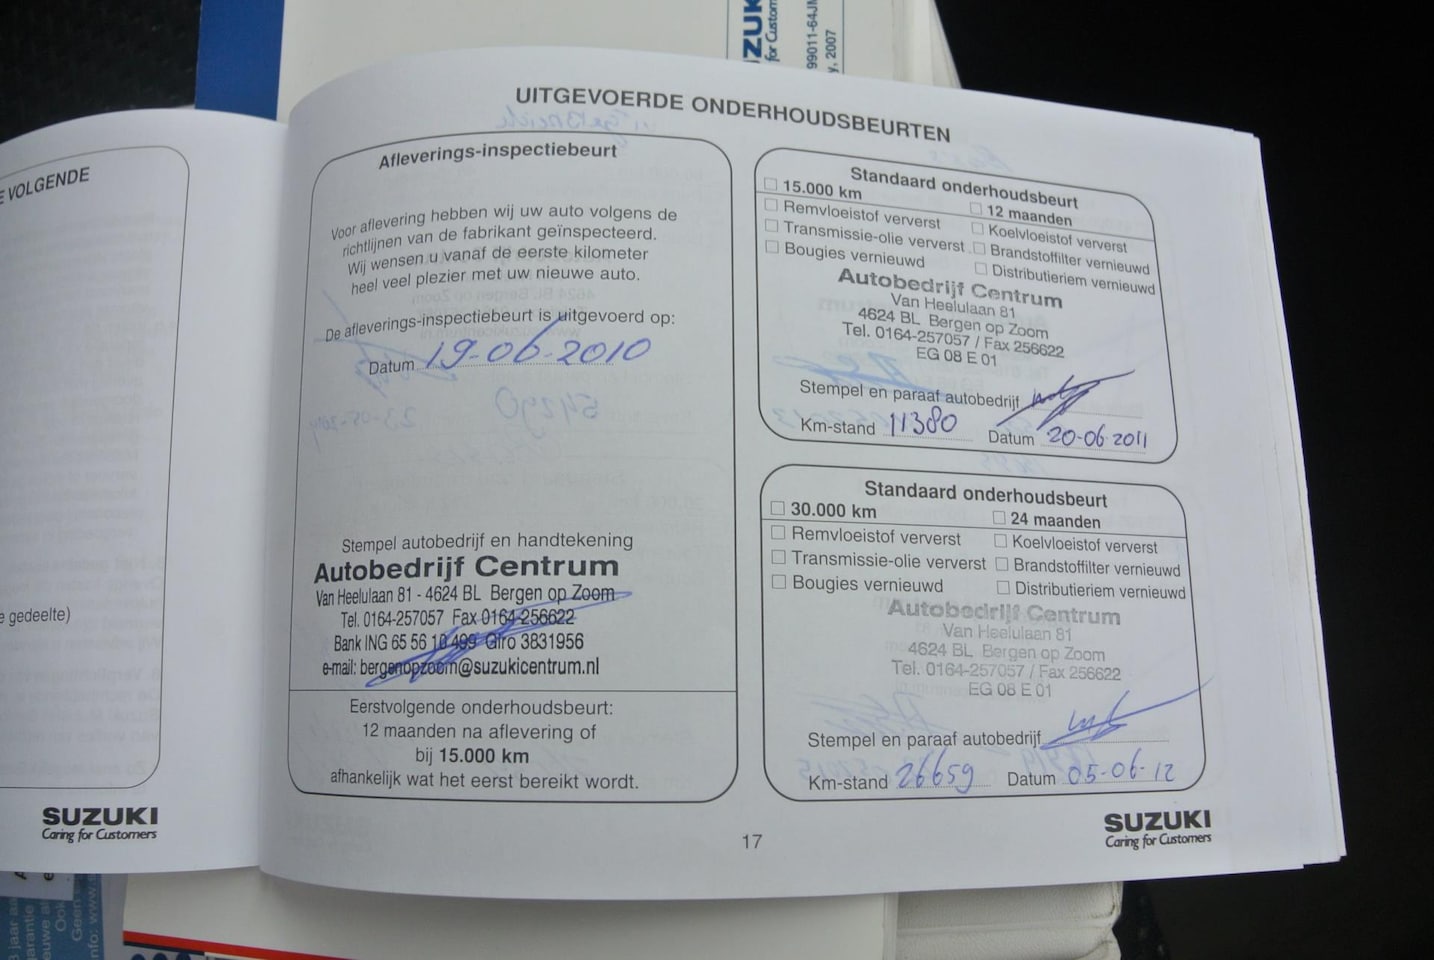 UZUKI
for Custom
99011-64JM
y, 2007
E VOLGENDE
e gedeelte)
SUZUKI
Caring for Customers
UITGEVOERDE ONDERHOUDSBEURTEN
Afleverings-inspectiebeurt
Voor aflevering hebben wij uw auto volgens de
richtlijnen van de fabrikant geïnspecteerd.
Wij wensen u vanaf de eerste kilometer
heel veel plezier met uw nieuwe auto.
De afleverings-inspectiebeurt is uitgevoerd op:
Datum 19-06-2010
Stempel autobedrijf en handtekening
Autobedrijf Centrum
Van Heelulaan 81 - 4624 BL Bergen op Zoom
Tel. 0164-257057 Fax 0164-256622
Bank ING 65 56 10 499 Giro 3831956
e-mail: bergenopzoom@suzukicentrum.nl
Eerstvolgende onderhoudsbeurt:
12 maanden na aflevering of
bij 15.000 km
afhankelijk wat het eerst bereikt wordt.
Standaard onderhoudsbeurt
15.000 km 12 maanden
Remvloeistof ververst Koelvloeistof ververst
Transmissie-olie ververst Brandstoffilter vernieuwd
Bougies vernieuwd Distributieriem vernieuwd
Autobedrijf Centrum
Van Heelulaan 81
4624 BL Bergen op Zoom
Tel. 0164-257057 / Fax 256622
EG 08 E 01
Stempel en paraaf autobedrijf
Km-stand 11380 Datum 20-06-2011
Standaard onderhoudsbeurt
30.000 km 24 maanden
Remvloeistof ververst Koelvloeistof ververst
Transmissie-olie ververst Brandstoffilter vernieuwd
Bougies vernieuwd Distributieriem vernieuwd
Autobedrijf Centrum
Van Heelulaan 81
4624 BL Bergen op Zoom
Tel. 0164-257057 / Fax 256622
EG 08 E 01
Stempel en paraaf autobedrijf
Km-stand 26659 Datum 05-06-12
17
SUZUKI
Caring for Customers